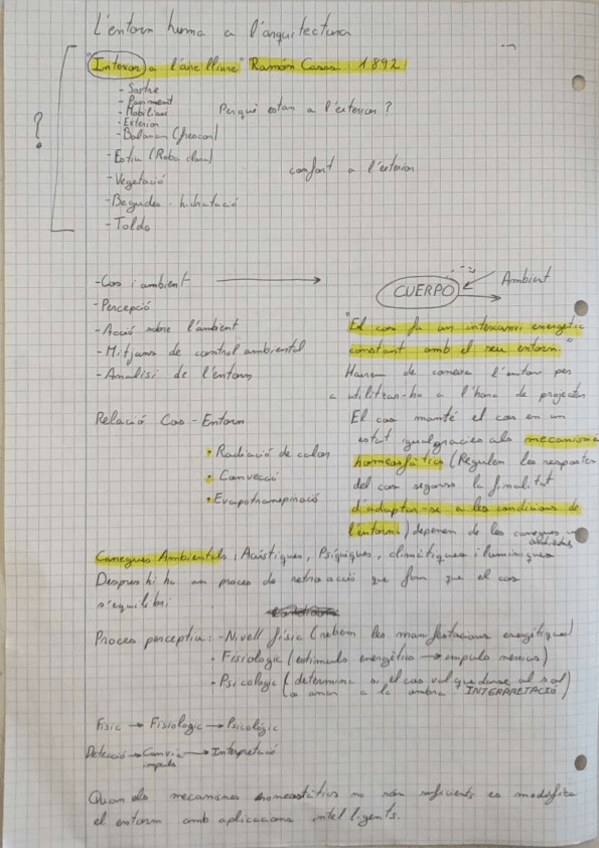 L'entorn humà a l'arquitectura
"Interior a l'aire lliure" Ramón Casas 1892
?
- Sostre
- Paviment
- Mobiliari
- Exterior
- Balancan (frescor)
Perquè estan a l'exterior?
- Estiu (Roba clara)
- Vegetació
- Begudes - hidratació
- Toldo
confort a l'exterior
- Cos i ambient
- Percepció
- Acció sobre l'ambient
- Mitjans de control ambiental
- Analisi de l'entorn
Relació Cos - Entorn
• Radiació de calor
• Convecció
• Evapotranspiració
CUERPO
Ambient
"El cos fa un intercanvi energetic
constant amb el seu entorn."
Haurem de coneixer l'entorn per
a utilitzar-ho a l'hora de projectar
El cos manté el cos en un
estat igual gracies als mecanismes
homeostàtics (Regulen les respostes
del cos segons la finalitat
d'adaptar-se a les condicions de
l'entorn) depenem de les carregues ambientals
Carregues Ambientals: Acústiques, Psíquiques, climàtiques i lumíniques
Despres hi ha un proces de retroacció que fam que el cos
s'equilibri
Proces perceptiu: - Nivell físic (rebem les manifestacions energétiques)
• Fisiologic (estimulo energético → impulso nervios)
• Psicologic (determina si el cos vol quedarse al sol
o anar a la ombra "INTERPRETACIÓ)
Fisic → Fisiologic → Psicològic
Detecció → Canvi a impuls → Interpretació
Quan els mecanismes homeostàtics no són suficients es modifica
el entorn amb aplicacions intel·ligents.